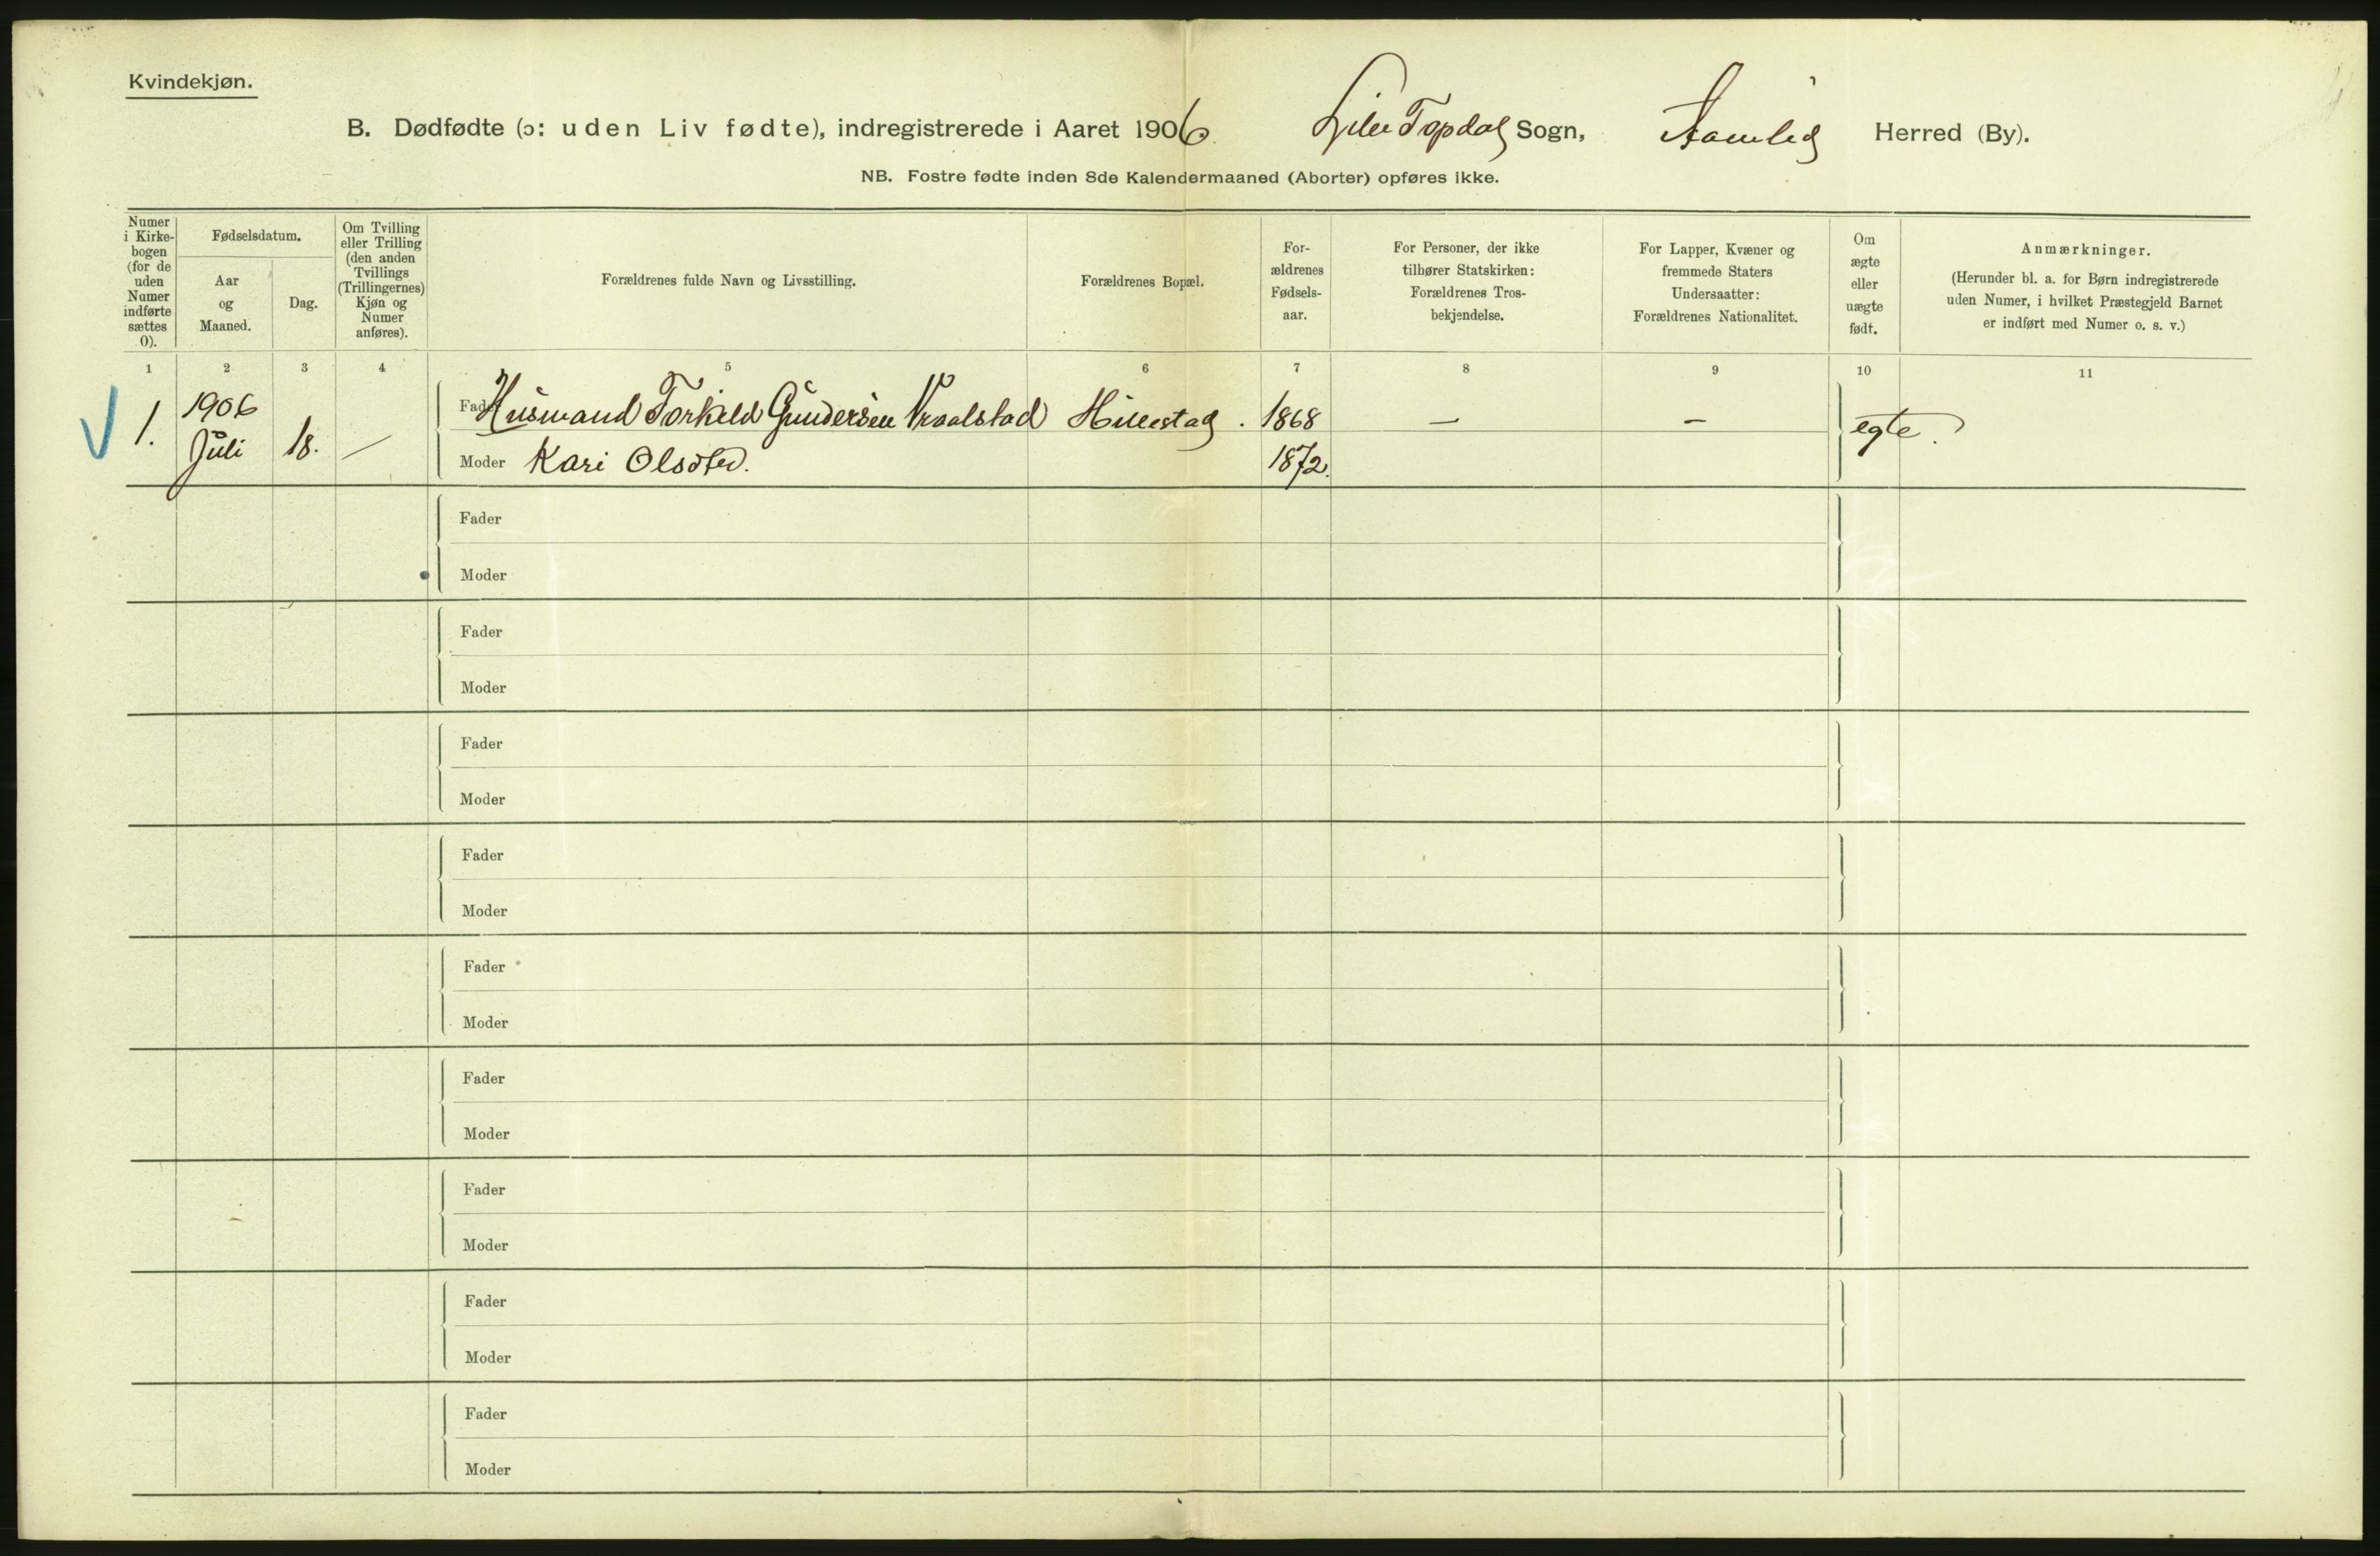 Kvindekjøn.
B. Dødfødte (ɔ: uden Liv fødte), indregistrerede i Aaret 1906. Lille Topdal Sogn, Aamlid Herred (By).
NB. Fostre fødte inden 8de Kalendermaaned (Aborter) opføres ikke.
Numer i Kirke-bogen (for de uden Numer indførte sættes 0).
Fødselsdatum.
Aar og Maaned.
Dag.
Om Tvilling eller Trilling (den anden Tvillings (Trillingernes) Kjøn og Numer anføres).
Forældrenes fulde Navn og Livsstilling.
Forældrenes Bopæl.
For-ældrenes Fødsels-aar.
For Personer, der ikke tilhører Statskirken: Forældrenes Tros-bekjendelse.
For Lapper, Kvæner og fremmede Staters Undersaatter: Forældrenes Nationalitet.
Om ægte eller uægte født.
Anmærkninger.
(Herunder bl. a. for Børn indregistrerede uden Numer, i hvilket Præstegjeld Barnet er indført med Numer o. s. v.)
1 2 3 4 5 6 7 8 9 10 11
1. 1906 Juli 18. — Fader Husmand Torkild Gundersen Vraalstad Hillestad. 1868 — — egte.
Moder Kari Olsdtr. 1872.
Fader
Moder
Fader
Moder
Fader
Moder
Fader
Moder
Fader
Moder
Fader
Moder
Fader
Moder
Fader
Moder
Fader
Moder